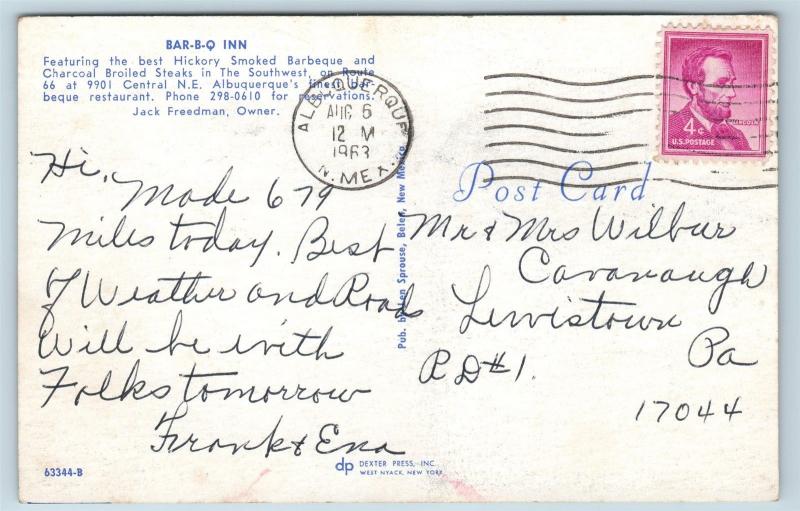 BAR-B-Q INN
Featuring the best Hickory Smoked Barbeque and
Charcoal Broiled Steaks in The Southwest, on Route
66 at 9901 Central N.E. Albuquerque's finest bar-
beque restaurant. Phone 298-0610 for reservations.
Jack Freedman, Owner.
ALBUQUERQUE
AUG 6
12 M
1963
N. MEX.
LINCOLN
4¢
U.S. POSTAGE
Post Card
Hi,
Made 679
miles today. Best
of Weather and Roads
Will be with
Folks tomorrow
Frank & Ena
Pub. by Len Sprouse, Belen, New Mexico
Mr & Mrs Wilbur
Cavanaugh
Lewistown
Pa
R D #1.
17044
63344-B
dp DEXTER PRESS, INC.
WEST NYACK, NEW YORK